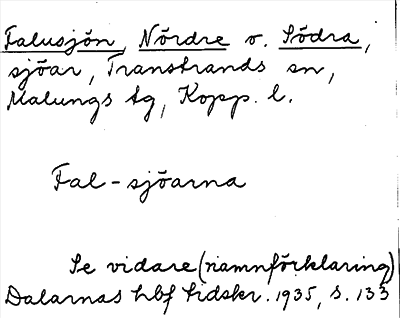 Falusjön, Nördre o. Södra,
sjöar, Transtrands sn,
Malungs tg, Kopp. l.
Fal-sjöarna
Se vidare (namnförklaring)
Dalarnas hbf tidskr. 1935, s. 133